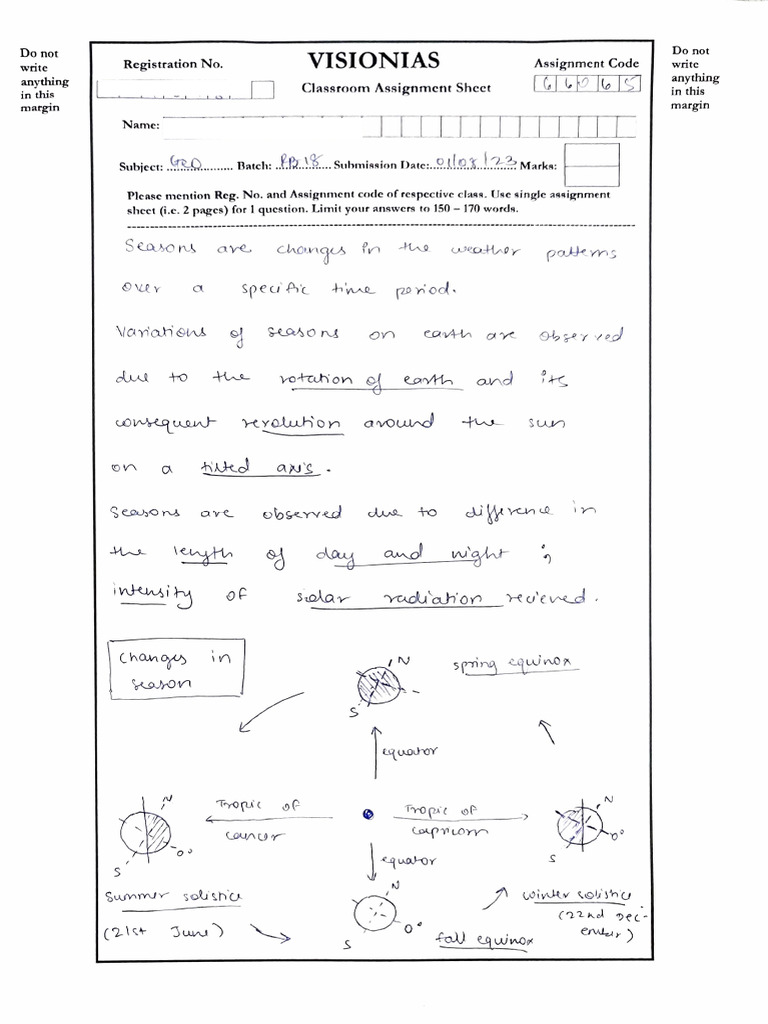 Do not
write
anything
in this
margin
Registration No.
VISIONIAS
Assignment Code
Classroom Assignment Sheet
6 6 0 6 5
Do not
write
anything
in this
margin
Name:
Subject: GEO Batch: PB18 Submission Date: 01/08/23 Marks:
Please mention Reg. No. and Assignment code of respective class. Use single assignment
sheet (i.e. 2 pages) for 1 question. Limit your answers to 150 – 170 words.
Seasons are changes in the weather patterns
over a specific time period.
Variations of seasons on earth are observed
due to the rotation of earth and its
consequent revolution around the sun
on a tilted axis.
Seasons are observed due to difference in
the length of day and night ;
intensity of solar radiation recieved.
Changes in
season
N
S
spring equinox
equator
N
S
0°
Tropic of
cancer
Tropic of
capricorn
N
S
0°
equator
summer solistice
(21st June)
N
S
0°
fall equinox
winter solistice
(22nd Dec-
ember)